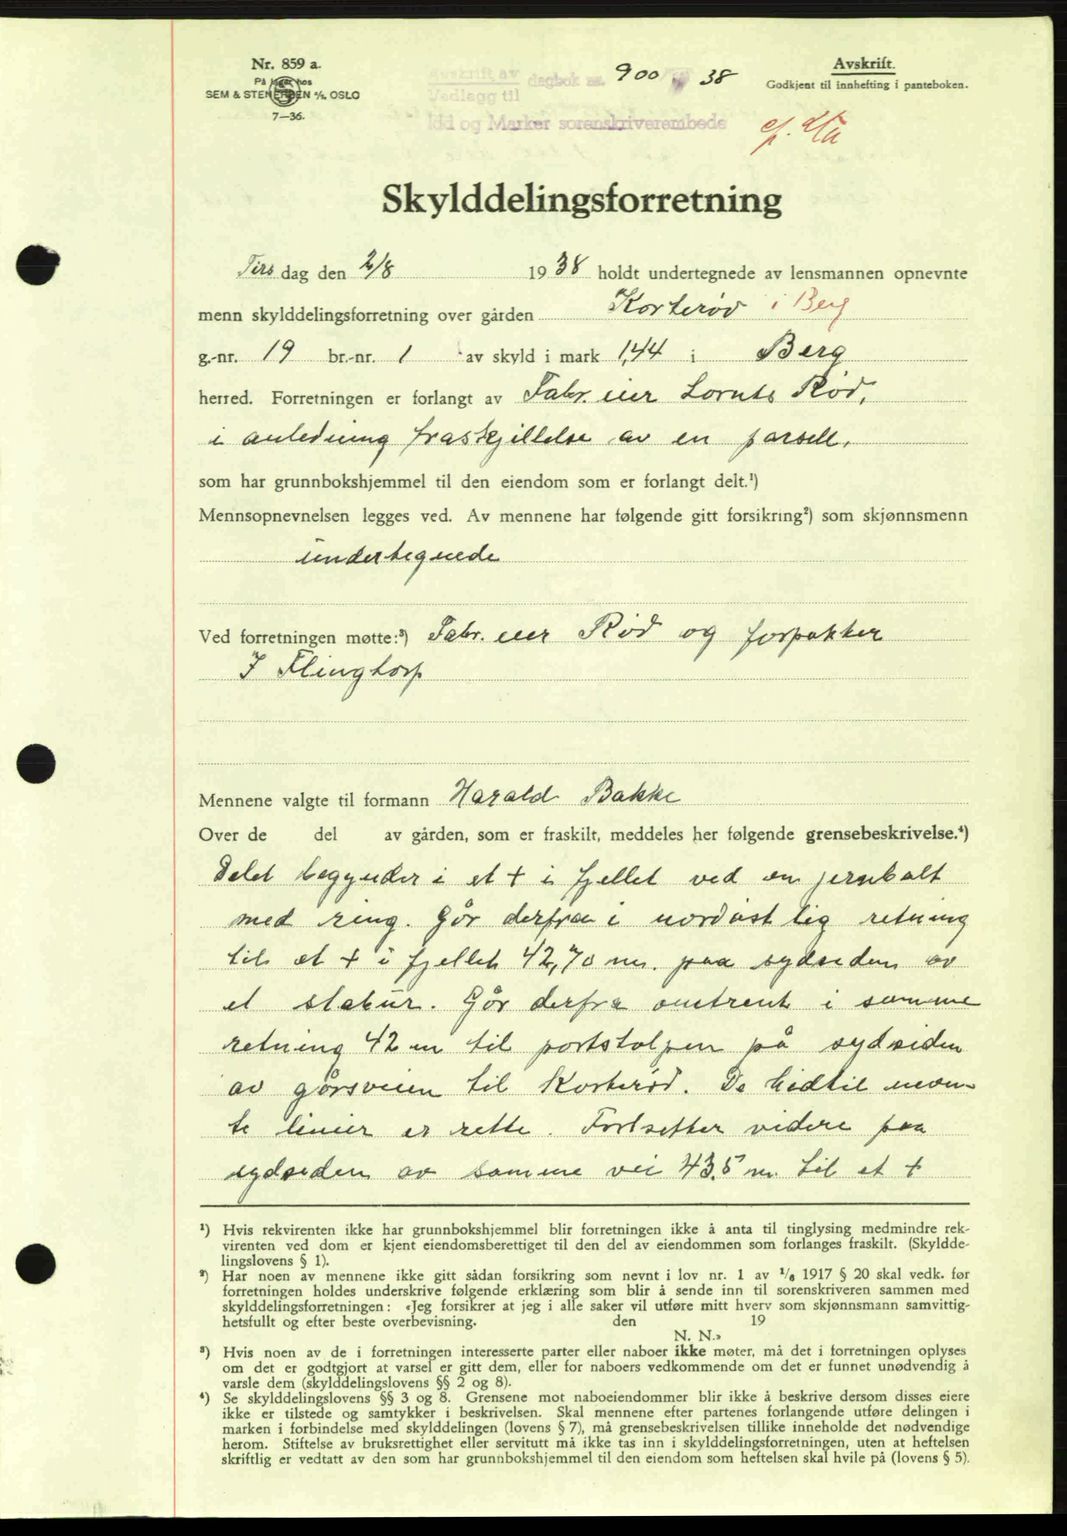 Nr. 859 a.
På lager hos
SEM & STENERSEN A/S, OSLO
7—36.
Avskrift av
Vedlagg til
dagbok nr. 900 38
Idd og Marker sorenskriverembede
Avskrift.
Godkjent til innhefting i panteboken.
Skylddelingsforretning
Tirs dag den 2/8 1938 holdt undertegnede av lensmannen opnevnte
menn skylddelingsforretning over gården Korterød i Berg
g.-nr. 19 br.-nr. 1 av skyld i mark 1,44 i Berg
herred. Forretningen er forlangt av Fabr. eier Lornts Rød,
i anledning fraskjillelse av en parsell,
som har grunnbokshjemmel til den eiendom som er forlangt delt.¹)
Mennsopnevnelsen legges ved. Av mennene har følgende gitt forsikring²) som skjønnsmenn
undertegnede
Ved forretningen møtte:³) Fabr. eier Rød og forpakter
J Flingtorp
Mennene valgte til formann Harald Bakke
Over de del av gården, som er fraskilt, meddeles her følgende grensebeskrivelse.⁴)
Delet begynder i et + i fjellet ved en jernbolt
med ring. Går derfra i nordøstlig retning
til et + i fjellet 42,70 m. paa sydsiden av
et stabur. Går derfra omtrent i samme
retning 42 m til portstolpen på sydsiden
av gårsveien til Korterød. De hidtil nevn-
te linier er rette. Fortsetter videre paa
sydsiden av samme vei 43,5 m. til et +
¹) Hvis rekvirenten ikke har grunnbokshjemmel blir forretningen ikke å anta til tinglysing medmindre rek-
virenten ved dom er kjent eiendomsberettiget til den del av eiendommen som forlanges fraskilt. (Skyldde-
lingslovens § 1).
²) Har noen av mennene ikke gitt sådan forsikring som nevnt i lov nr. 1 av 1/6 1917 § 20 skal vedk. før
forretningen holdes underskrive følgende erklæring som blir å sende inn til sorenskriveren sammen med
skylddelingsforretningen: «Jeg forsikrer at jeg i alle saker vil utføre mitt hverv som skjønnsmann samvittig-
hetsfullt og efter beste overbevisning. den 19
N. N.»
³) Hvis noen av de i forretningen interesserte parter eller naboer ikke møter, må det i forretningen oplyses
om det er godtgjort at varsel er gitt dem, eller for naboers vedkommende om det er funnet unødvendig å
varsle dem (skylddelingslovens §§ 2 og 8).
⁴) Se skylddelingslovens §§ 3 og 8. Grensene mot naboeiendommer blir ikke å beskrive dersom disses eiere
ikke er tilstede og samtykker i beskrivelsen. Skal mennene efter partenes forlangende utføre delingen i
marken i forbindelse med skylddelingen (lovens § 7), må grensebeskrivelsen tillike inneholde det nødvendige
herom. Stiftelse av bruksrettighet eller servitutt må ikke tas inn i skylddelingsforretningen, uten at heftelsen
skriftlig er vedtatt av den som har grunnbokshjemmel til den eiendom som heftelsen skal hvile på (lovens § 5).